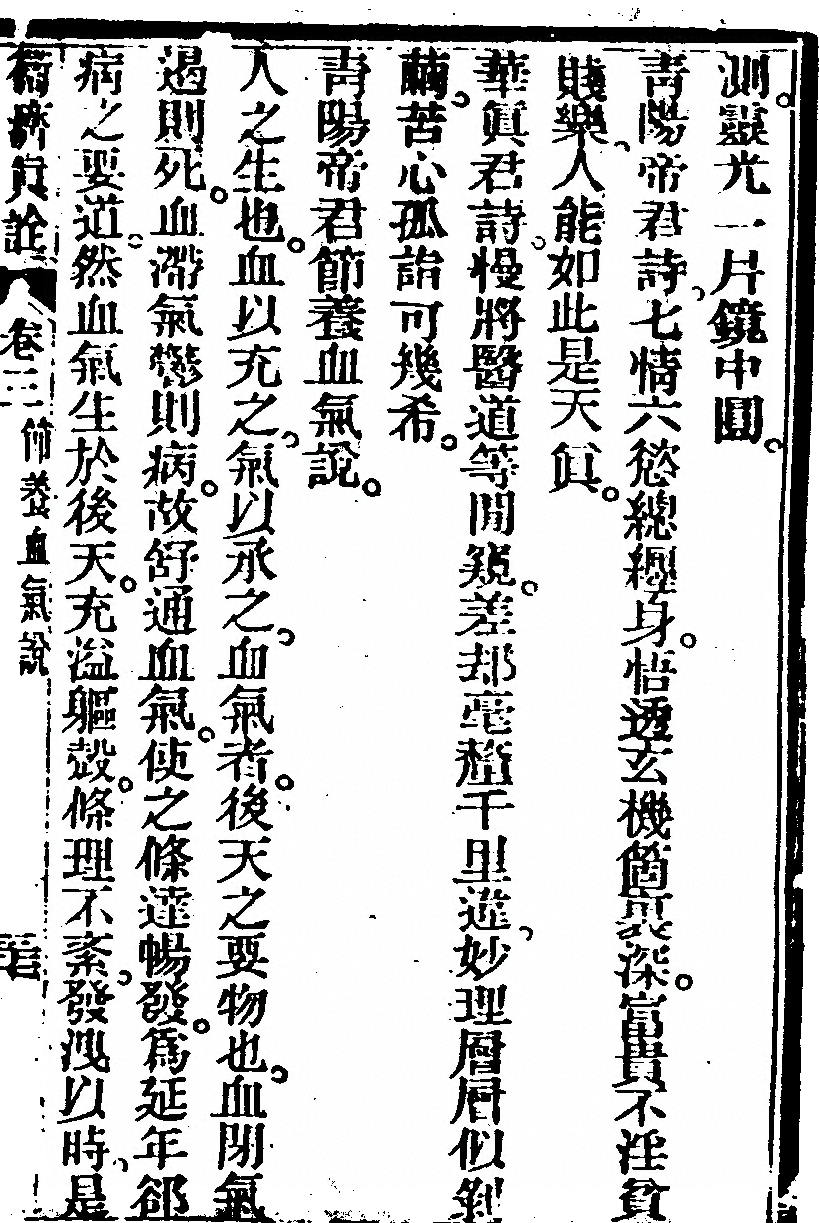 測。靈光一片鏡中圓。
青陽帝君詩、七情六慾總纏身。悟透玄機箇裏深。富貴不淫貧
賤樂、人能如此是天眞。
華眞君詩。慢將醫道等閒窺。差却毫釐千里違、妙理層層似剝
繭、苦心孤詣可幾希。
靑陽帝君節養血氣說。
人之生也。血以充之、氣以承之、血氣者。後天之要物也、血閉氣
遏則死。血滯氣鬱則病。故舒通血氣。使之條達暢發。爲延年郤
病之要道。然血氣生於後天。充溢軀殼。條理不紊、發洩以時、是
衞濟眞詮 卷三 節養血氣說